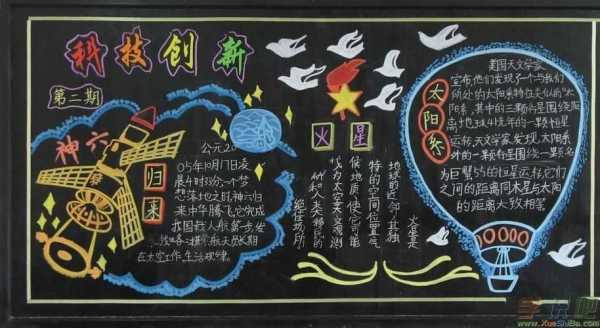 科技创新
第二期
神六
归来
公元20
05年10月17日凌
晨4时33分,一个梦
想落地之时,神六归
来中华腾飞,它完成
我国载人航天第一步发
在太空工作、生活规律。
火星
火星是
地球的近邻,其独
特的空间位置气
候地质,使它可能
成为太空天文观测
和人类移民的
绝佳场所
太阳系
美国天文学家
宣布,他们发现了一个与我们
所处的太阳系特征类似的"太
阳系,其中的三颗行星围绕距
离地球41光年的一颗恒星
运转,天文学家发现,太阳系
外的一颗行星围绕一颗名
为巨蟹55的恒星运转,它们
之间的距离同木星与太阳
的距离大致相等
学识吧
www.XueShiBa.com